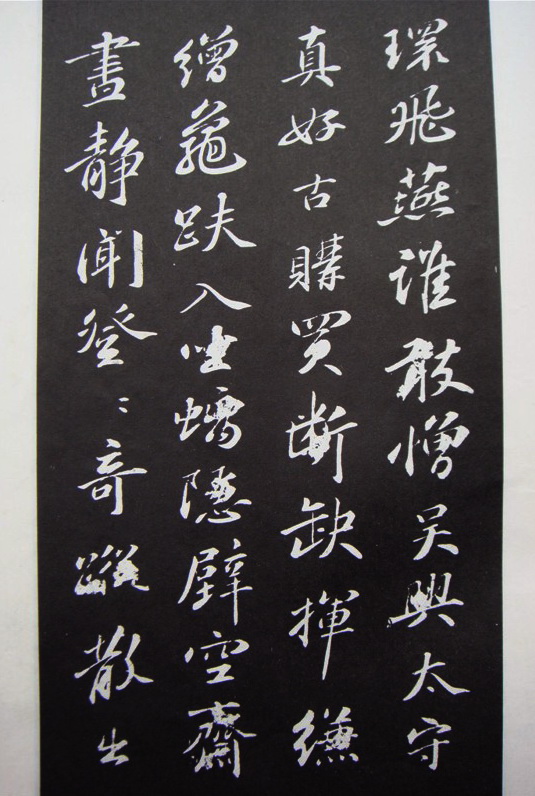 環飛燕誰敢憎吳興太守
真好古購買斷缺揮縑
繒龜趺入坐螭隱壁空齋
晝靜聞登〻奇蹤散出